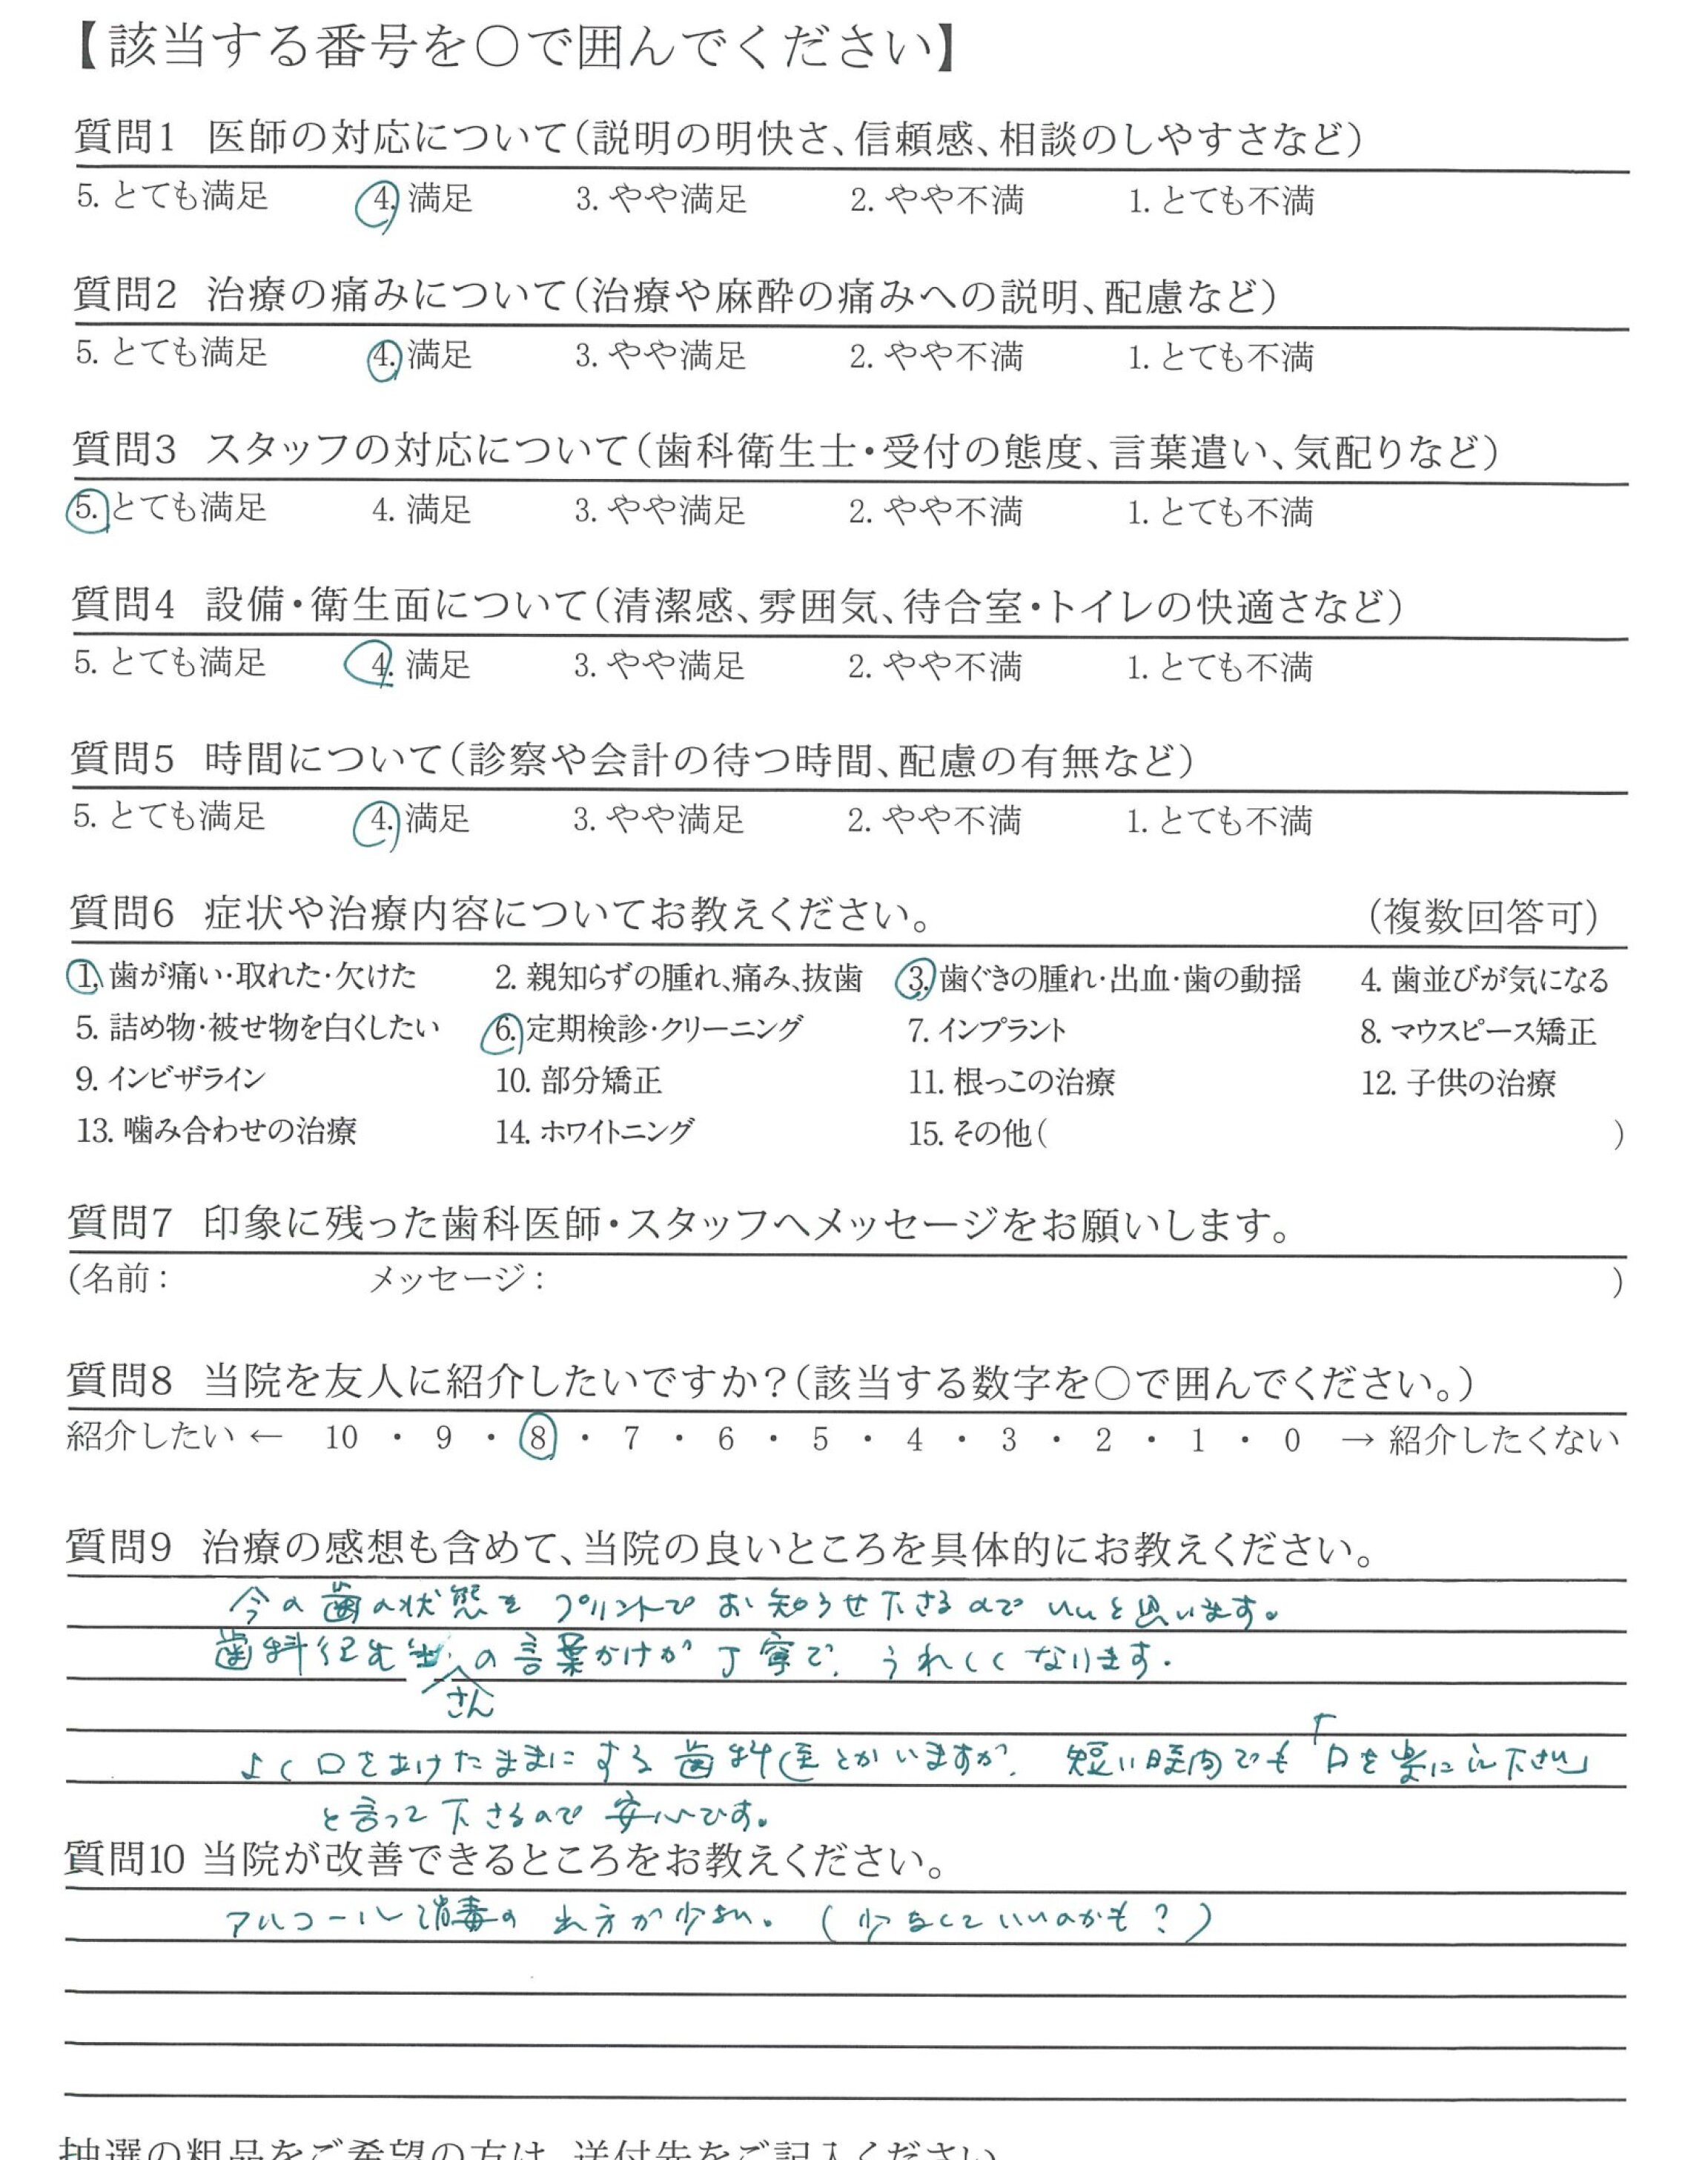 【該当する番号を〇で囲んでください】
質問1 医師の対応について(説明の明快さ、信頼感、相談のしやすさなど)
5. とても満足 4. 満足 3. やや満足 2. やや不満 1. とても不満
質問2 治療の痛みについて(治療や麻酔の痛みへの説明、配慮など)
5. とても満足 4. 満足 3. やや満足 2. やや不満 1. とても不満
質問3 スタッフの対応について(歯科衛生士・受付の態度、言葉遣い、気配りなど)
5. とても満足 4. 満足 3. やや満足 2. やや不満 1. とても不満
質問4 設備・衛生面について(清潔感、雰囲気、待合室・トイレの快適さなど)
5. とても満足 4. 満足 3. やや満足 2. やや不満 1. とても不満
質問5 時間について(診察や会計の待つ時間、配慮の有無など)
5. とても満足 4. 満足 3. やや満足 2. やや不満 1. とても不満
質問6 症状や治療内容についてお教えください。 (複数回答可)
1. 歯が痛い・取れた・欠けた 2. 親知らずの腫れ、痛み、抜歯 3. 歯ぐきの腫れ・出血・歯の動揺 4. 歯並びが気になる
5. 詰め物・被せ物を白くしたい 6. 定期検診・クリーニング 7. インプラント 8. マウスピース矯正
9. インビザライン 10. 部分矯正 11. 根っこの治療 12. 子供の治療
13. 噛み合わせの治療 14. ホワイトニング 15. その他( )
質問7 印象に残った歯科医師・スタッフへメッセージをお願いします。
(名前: メッセージ: )
質問8 当院を友人に紹介したいですか?(該当する数字を〇で囲んでください。)
紹介したい ← 10 ・ 9 ・ 8 ・ 7 ・ 6 ・ 5 ・ 4 ・ 3 ・ 2 ・ 1 ・ 0 → 紹介したくない
質問9 治療の感想も含めて、当院の良いところを具体的にお教えください。
今の歯の状態を プリントで お知らせ下さるので いいと思います。
歯科 の言葉かけが 丁寧で、うれしくなります。
さん
よく口をあけたままにする歯科医とかいますが、短い時間でも「口を楽にして下さい」
と言って下さるので 安心です。
質問10 当院が改善できるところをお教えください。
アルコール消毒の 出方が少ない。(少なくていいのかも?)
抽選の粗品をご希望の方は、送付先をご記入ください